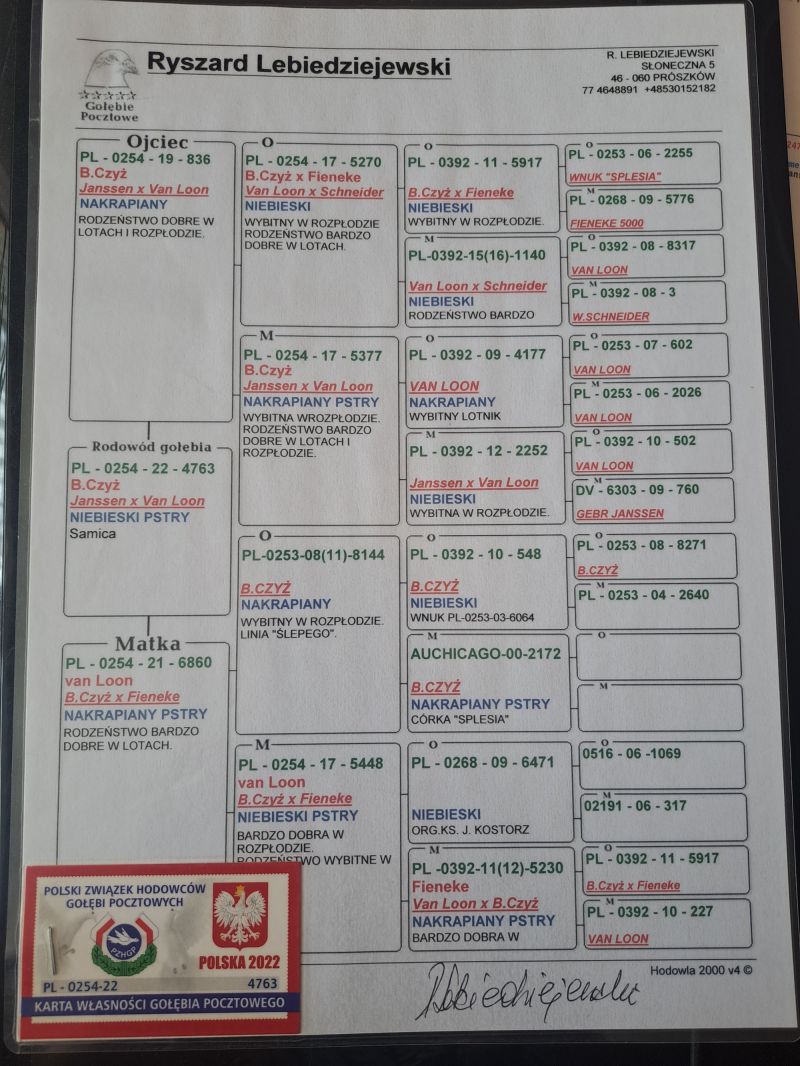 Ryszard Lebiedziejewski
R. LEBIEDZIEJEWSKI
SŁONECZNA 5
46 - 060 PRÓSZKÓW
77 4648891 +48530152182
Gołębie
Pocztowe
Ojciec
PL - 0254 - 19 - 836
B.Czyż
Janssen x Van Loon
NAKRAPIANY
RODZEŃSTWO DOBRE W
LOTACH I ROZPŁODZIE.
Rodowód gołębia
PL - 0254 - 22 - 4763
B.Czyż
Janssen x Van Loon
NIEBIESKI PSTRY
Samica
Matka
PL - 0254 - 21 - 6860
van Loon
B.Czyż x Fieneke
NAKRAPIANY PSTRY
RODZEŃSTWO BARDZO
DOBRE W LOTACH.
O
PL - 0254 - 17 - 5270
B.Czyż x Fieneke
Van Loon x Schneider
NIEBIESKI
WYBITNY W ROZPŁODZIE
RODZEŃSTWO BARDZO
DOBRE W LOTACH.
M
PL - 0254 - 17 - 5377
B.Czyż
Janssen x Van Loon
NAKRAPIANY PSTRY
WYBITNA WROZPŁODZIE.
RODZEŃSTWO BARDZO
DOBRE W LOTACH I
ROZPŁODZIE.
O
PL-0253-08(11)-8144
B.CZYŻ
NAKRAPIANY
WYBITNY W ROZPŁODZIE.
LINIA "ŚLEPEGO".
M
PL - 0254 - 17 - 5448
van Loon
B.Czyż x Fieneke
NIEBIESKI PSTRY
BARDZO DOBRA W
ROZPŁODZIE.
RODZEŃSTWO WYBITNE W
O
PL - 0392 - 11 - 5917
B.Czyż x Fieneke
NIEBIESKI
WYBITNY W ROZPŁODZIE.
M
PL-0392-15(16)-1140
Van Loon x Schneider
NIEBIESKI
RODZEŃSTWO BARDZO
O
PL - 0392 - 09 - 4177
VAN LOON
NAKRAPIANY
WYBITNY LOTNIK
M
PL - 0392 - 12 - 2252
Janssen x Van Loon
NIEBIESKI
WYBITNA W ROZPŁODZIE.
O
PL - 0392 - 10 - 548
B.CZYŻ
NIEBIESKI
WNUK PL-0253-03-6064
M
AUCHICAGO-00-2172
B.CZYŻ
NAKRAPIANY PSTRY
CÓRKA "SPLESIA"
O
PL - 0268 - 09 - 6471
NIEBIESKI
ORG.KS. J. KOSTORZ
M
PL -0392-11(12)-5230
Fieneke
Van Loon x B.Czyż
NAKRAPIANY PSTRY
BARDZO DOBRA W
O
PL - 0253 - 06 - 2255
WNUK "SPLESIA"
M
PL - 0268 - 09 - 5776
FIENEKE 5000
O
PL - 0392 - 08 - 8317
VAN LOON
M
PL - 0392 - 08 - 3
W.SCHNEIDER
O
PL - 0253 - 07 - 602
VAN LOON
M
PL - 0253 - 06 - 2026
VAN LOON
O
PL - 0392 - 10 - 502
VAN LOON
M
DV - 6303 - 09 - 760
GEBR JANSSEN
O
PL - 0253 - 08 - 8271
B.CZYŻ
M
PL - 0253 - 04 - 2640
O
M
O
0516 - 06 -1069
M
02191 - 06 - 317
O
PL - 0392 - 11 - 5917
B.Czyż x Fieneke
M
PL - 0392 - 10 - 227
VAN LOON
POLSKI ZWIĄZEK HODOWCÓW
GOŁĘBI POCZTOWYCH
PZHGP
POLSKA 2022
PL - 0254-22 4763
KARTA WŁASNOŚCI GOŁĘBIA POCZTOWEGO
Hodowla 2000 v4 ©